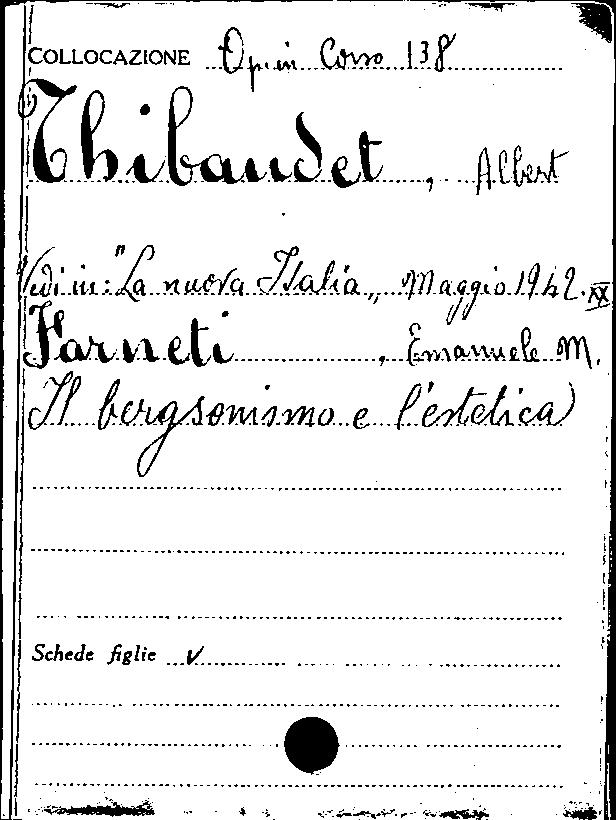 COLLOCAZIONE Op. in Corso 138
Thibaudet, Albert
Vedi in: "La nuova Italia„ Maggio 1942. XX
Farneti, Emanuele M.
Il bergsonismo e l'estetica
Schede figlie v